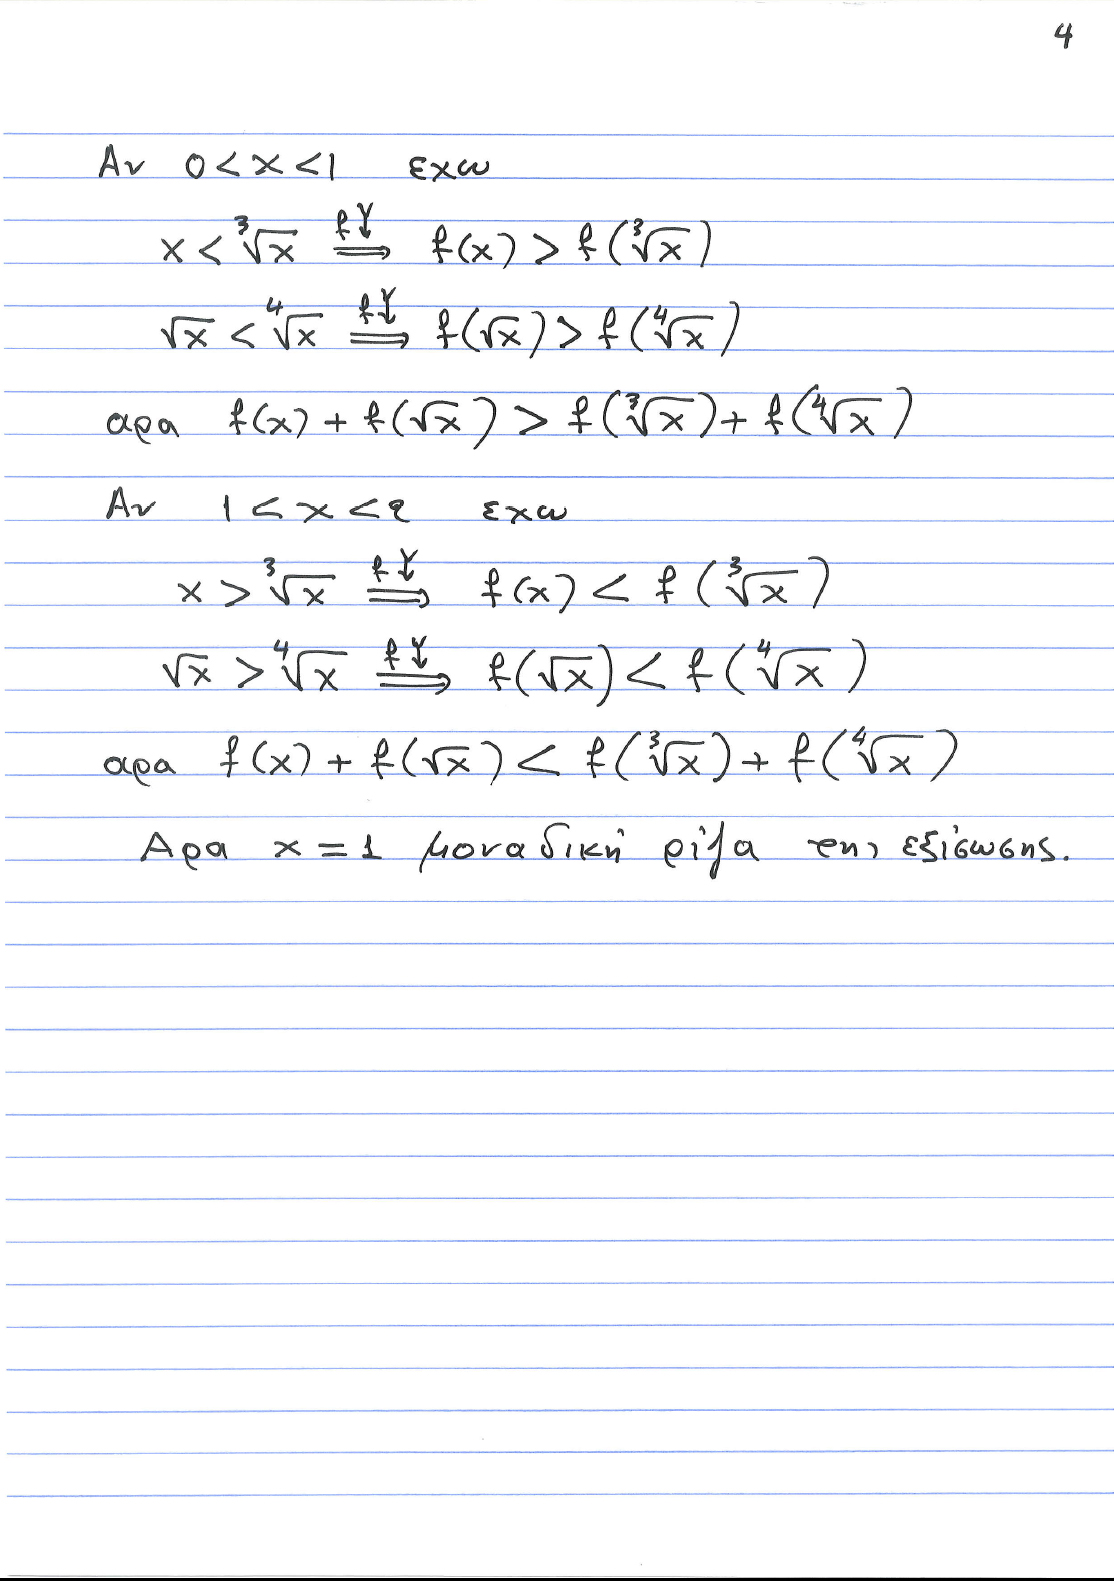 4
Αν 0 < x < 1 εχω
x < ∛x ⟹ (f↓) f(x) > f(∛x)
√x < ∜x ⟹ (f↓) f(√x) > f(∜x)
αρα f(x) + f(√x) > f(∛x) + f(∜x)
Αν 1 < x < 2 εχω
x > ∛x ⟹ (f↓) f(x) < f(∛x)
√x > ∜x ⟹ (f↓) f(√x) < f(∜x)
αρα f(x) + f(√x) < f(∛x) + f(∜x)
Αρα x = 1 μοναδική ρίζα της εξίσωσης.